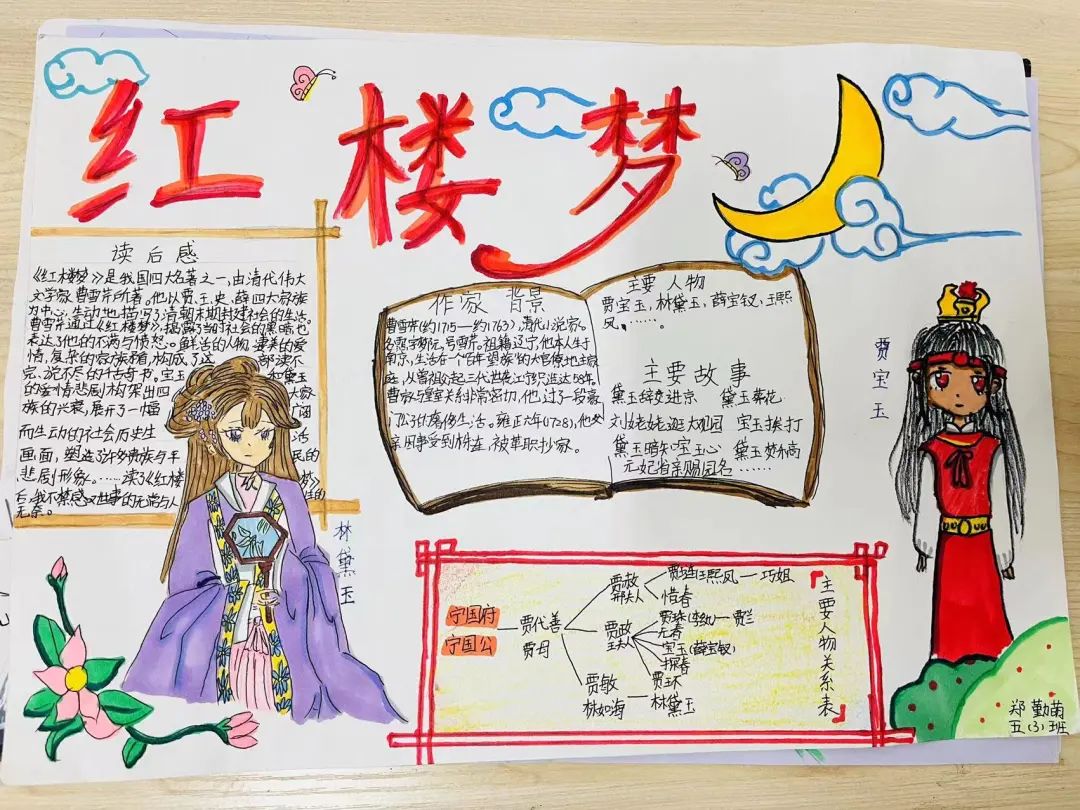 红楼梦
读后感
《红楼梦》是我国四大名著之一,由清代伟大
文学家曹雪芹所著。他以贾、王、史、薛四大家族
为中心,生动地描写了清朝末期封建社会的生活。
曹雪芹通过《红楼梦》,揭露了当时社会的黑暗也
表达了他的不满与愤怒。鲜活的人物、凄美的爱
情,复杂的家族矛盾,构成了这 部读不
完、说不尽的千古奇书。宝玉 和黛玉
的爱情悲剧,构架出四 大家
族的兴衰,展开了一幅 广阔
而生动的社会历史生 活
画面,塑造了许多贵族与平 民的
悲剧形象。……读了《红楼 梦》
后,我不禁感叹世事的无常与人
无奈。
林黛玉
作家 背景
曹雪芹(约1715—约1763),清代小说家。
名霑,字梦阮,号雪芹。祖籍辽宁,他本人生于
南京,生活在一个百年望族的大官僚地主家
庭,从曾祖父起三代世袭江宁织造达58年。
曹家与皇室关系非常密切,他度过了一段豪
门公子的奢侈生活。雍正六年(1728),他父
亲因事受到株连,被革职抄家。
主要 人物
贾宝玉,林黛玉,薛宝钗,王熙
凤,……。
主要故事
黛玉辞父进京 黛玉葬花
刘姥姥逛大观园 宝玉挨打
黛玉暗知宝玉心 黛玉焚稿
元妃省亲赐园名……
贾宝玉
宁国府
宁国公
贾代善
贾母
贾赦
邢夫人
贾琏(王熙凤)—巧姐
惜春
贾政
王夫人
贾珠(李纨)—贾兰
元春
宝玉(薛宝钗)
探春
贾环
贾敏
林如海
林黛玉
「主要人物关系表」
郑勤菊
五(3)班